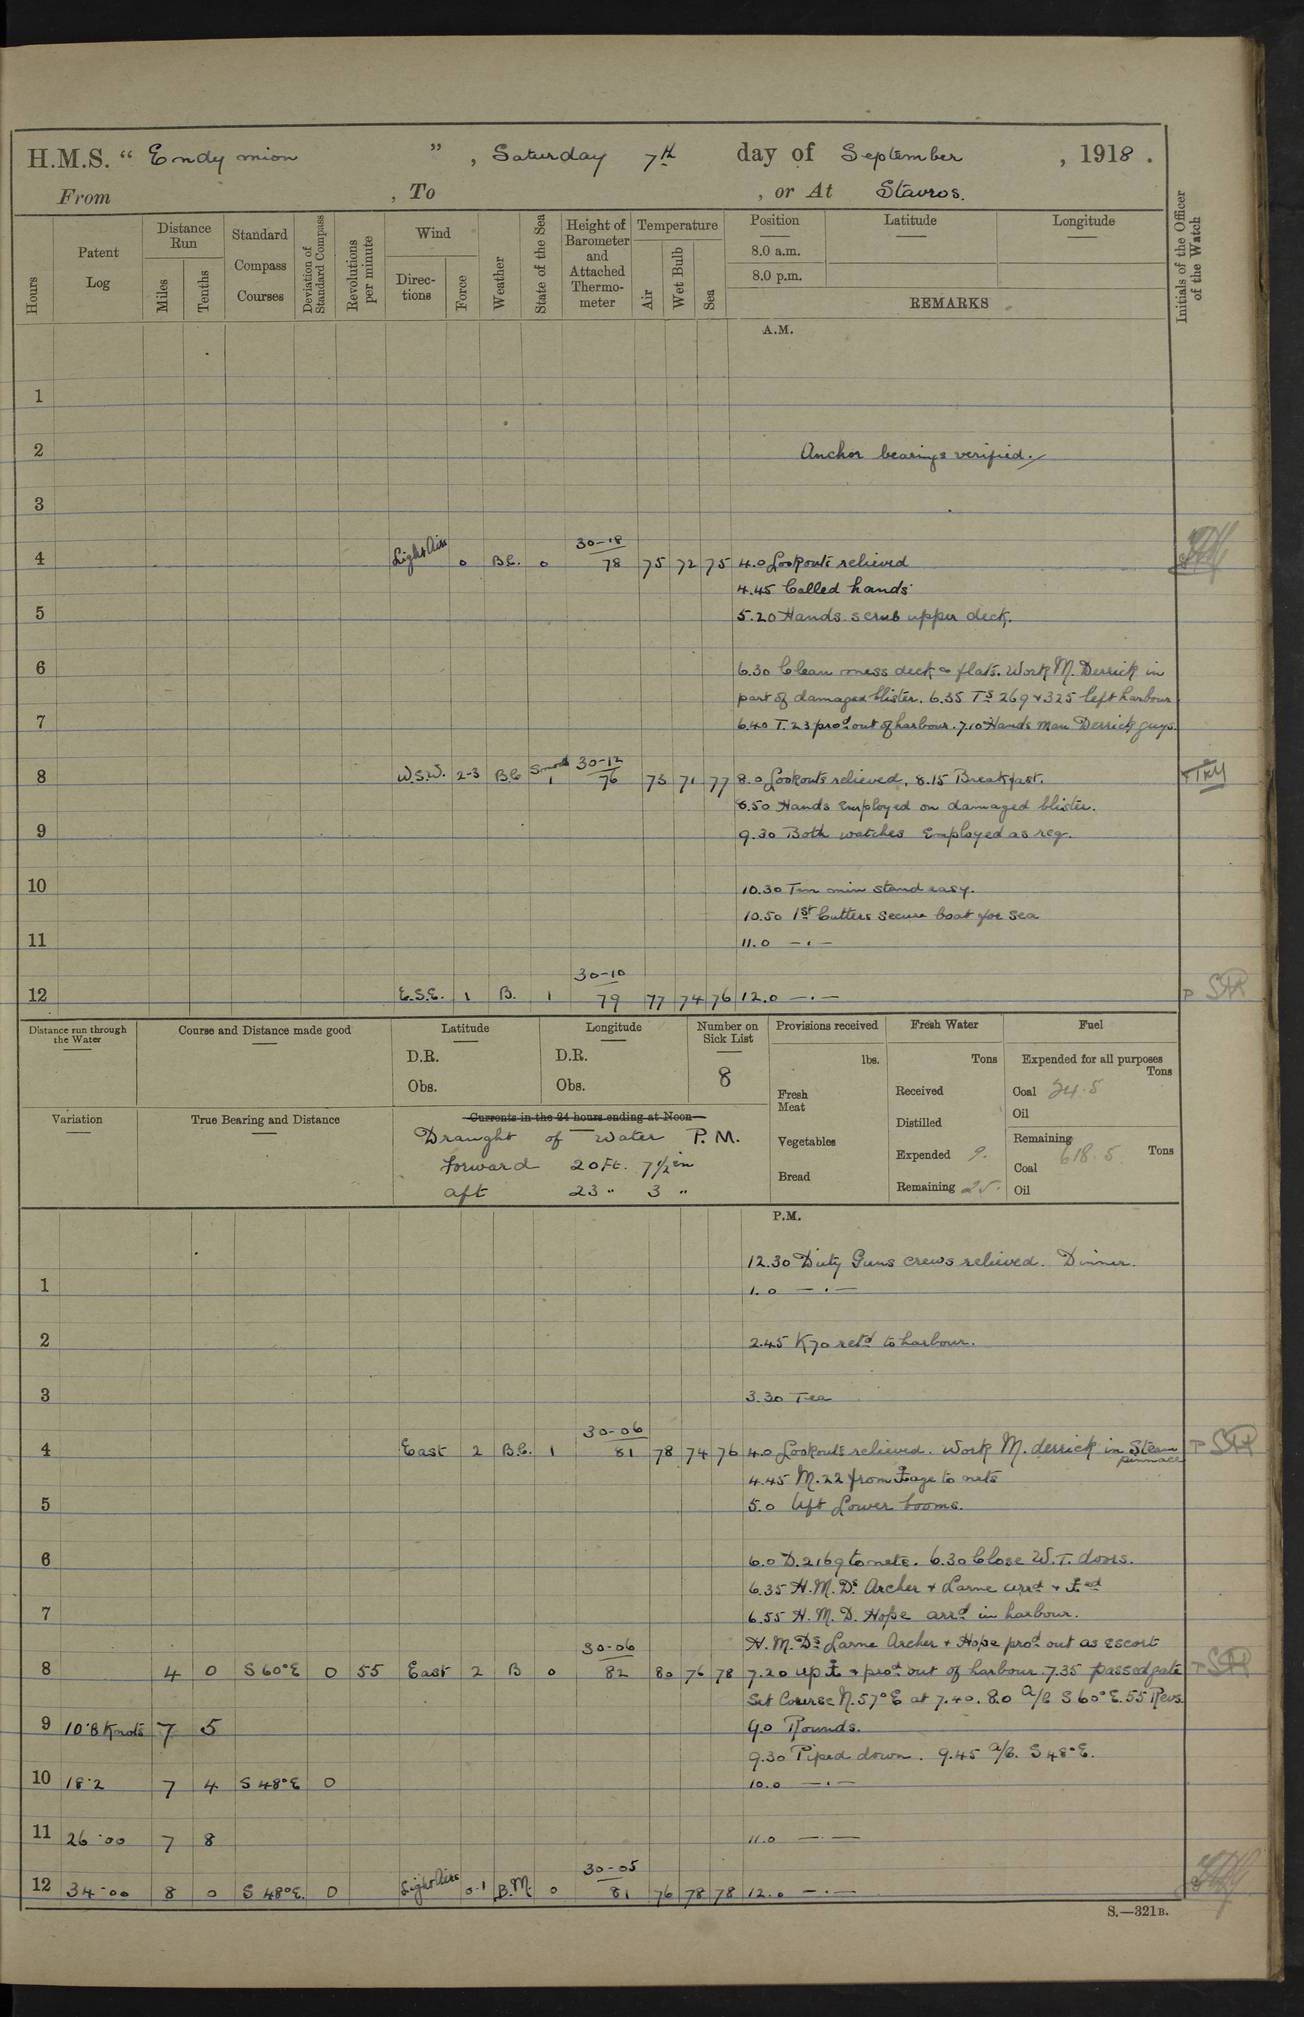 H.M.S. “ Endymion ” , Saturday 7th day of September , 1918 .
From , To , or At Stavros.
Hours
Patent Log
Distance Run
Miles
Tenths
Standard Compass Courses
Deviation of Standard Compass
Revolutions per minute
Wind
Directions
Force
Weather
State of the Sea
Height of Barometer and Attached Thermometer
Temperature
Air
Wet Bulb
Sea
Position
8.0 a.m.
8.0 p.m.
Latitude
Longitude
REMARKS
Initials of the Officer of the Watch
A.M.
1
2 Anchor bearings verified.
3
4 Light Airs 0 B.C. 0 30-18 78 75 72 75 4.0 Lookouts relieved
4.45 Called hands
5 5.20 Hands scrub upper deck.
6 6.30 Clean mess deck & flats. Work M. Derrick in
part of damaged blister. 6.35 Ts 269 & 325 left harbour
7 6.40 T. 23 prod out of harbour. 7.10 Hands man Derrick guys.
8 W.S.W. 2-3 B.C Smooth 1 30-12 76 73 71 77 8.0 Lookouts relieved, 8.15 Breakfast.
8.50 Hands employed on damaged blister.
9 9.30 Both watches Employed as req.
10 10.30 Ten min stand easy.
10.50 1st Cutters secure boat for sea
11 11.0 — · —
12 E.S.E. 1 B. 1 30-10 79 77 74 76 12.0 — · —
Distance run through the Water
Course and Distance made good
Latitude
D.R.
Obs.
Longitude
D.R.
Obs.
Number on Sick List
8
Provisions received
lbs.
Fresh Meat
Vegetables
Bread
Fresh Water
Tons
Received
Distilled
Expended 9.
Remaining 25.
Fuel
Expended for all purposes
Tons
Coal 24.5
Oil
Remaining
Coal 618.5 Tons
Oil
Variation
True Bearing and Distance
Currents in the 24 hours ending at Noon
Draught of Water P.M.
Forward 20 Ft. 7 1/2 in
aft 23 " 3 "
P.M.
12.30 Duty Guns crews relieved. Dinner.
1 1.0 — · —
2 2.45 K70 retd to harbour.
3 3.30 Tea
4 East 2 B.C. 1 30-06 81 78 74 76 4.0 Lookouts relieved. Work M. derrick in Steam pinnace
4.45 M.22 from ⚓age to nets
5 5.0 Lift Lower booms.
6 6.0 D.2169 to nets. 6.30 Close W.T. doors.
6.35 H.M.Ds Archer & Larne arrd & ⚓ed
7 6.55 H.M.D. Hope arrd in harbour.
H.M.Ds Larne Archer & Hope prod out as escort
8 4 0 S 60°E 0 55 East 2 B 0 30-06 82 80 76 78 7.20 up ⚓ & prod out of harbour. 7.35 passed gate
Set Course N.57°E at 7.40. 8.0 a/c S.60°E. 55 Revs.
9 10.8 Knots 7 5 9.0 Rounds.
9.30 Piped down. 9.45 a/c. S 48°E.
10 18.2 7 4 S 48°E 0 10.0 — · —
11 26.00 7 8 11.0 — · —
12 34.00 8 0 S 48°E. 0 Light Airs 0-1 B.M. 0 30-05 81 76 78 78 12.0 — · —
S.—321B.